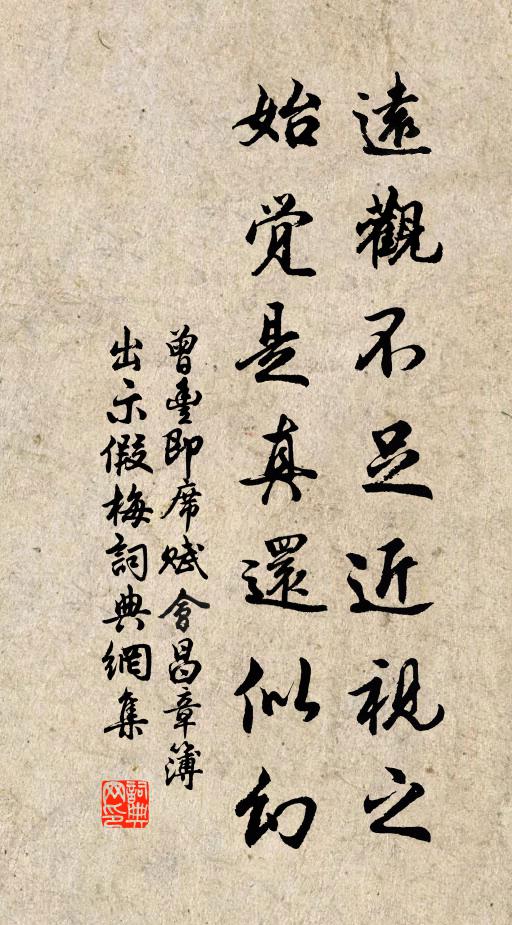 遠觀不足近視之
始覚是真還似幻
曾豐即席賦會昌章簿
出示假梅詞典網集
詞典
网印